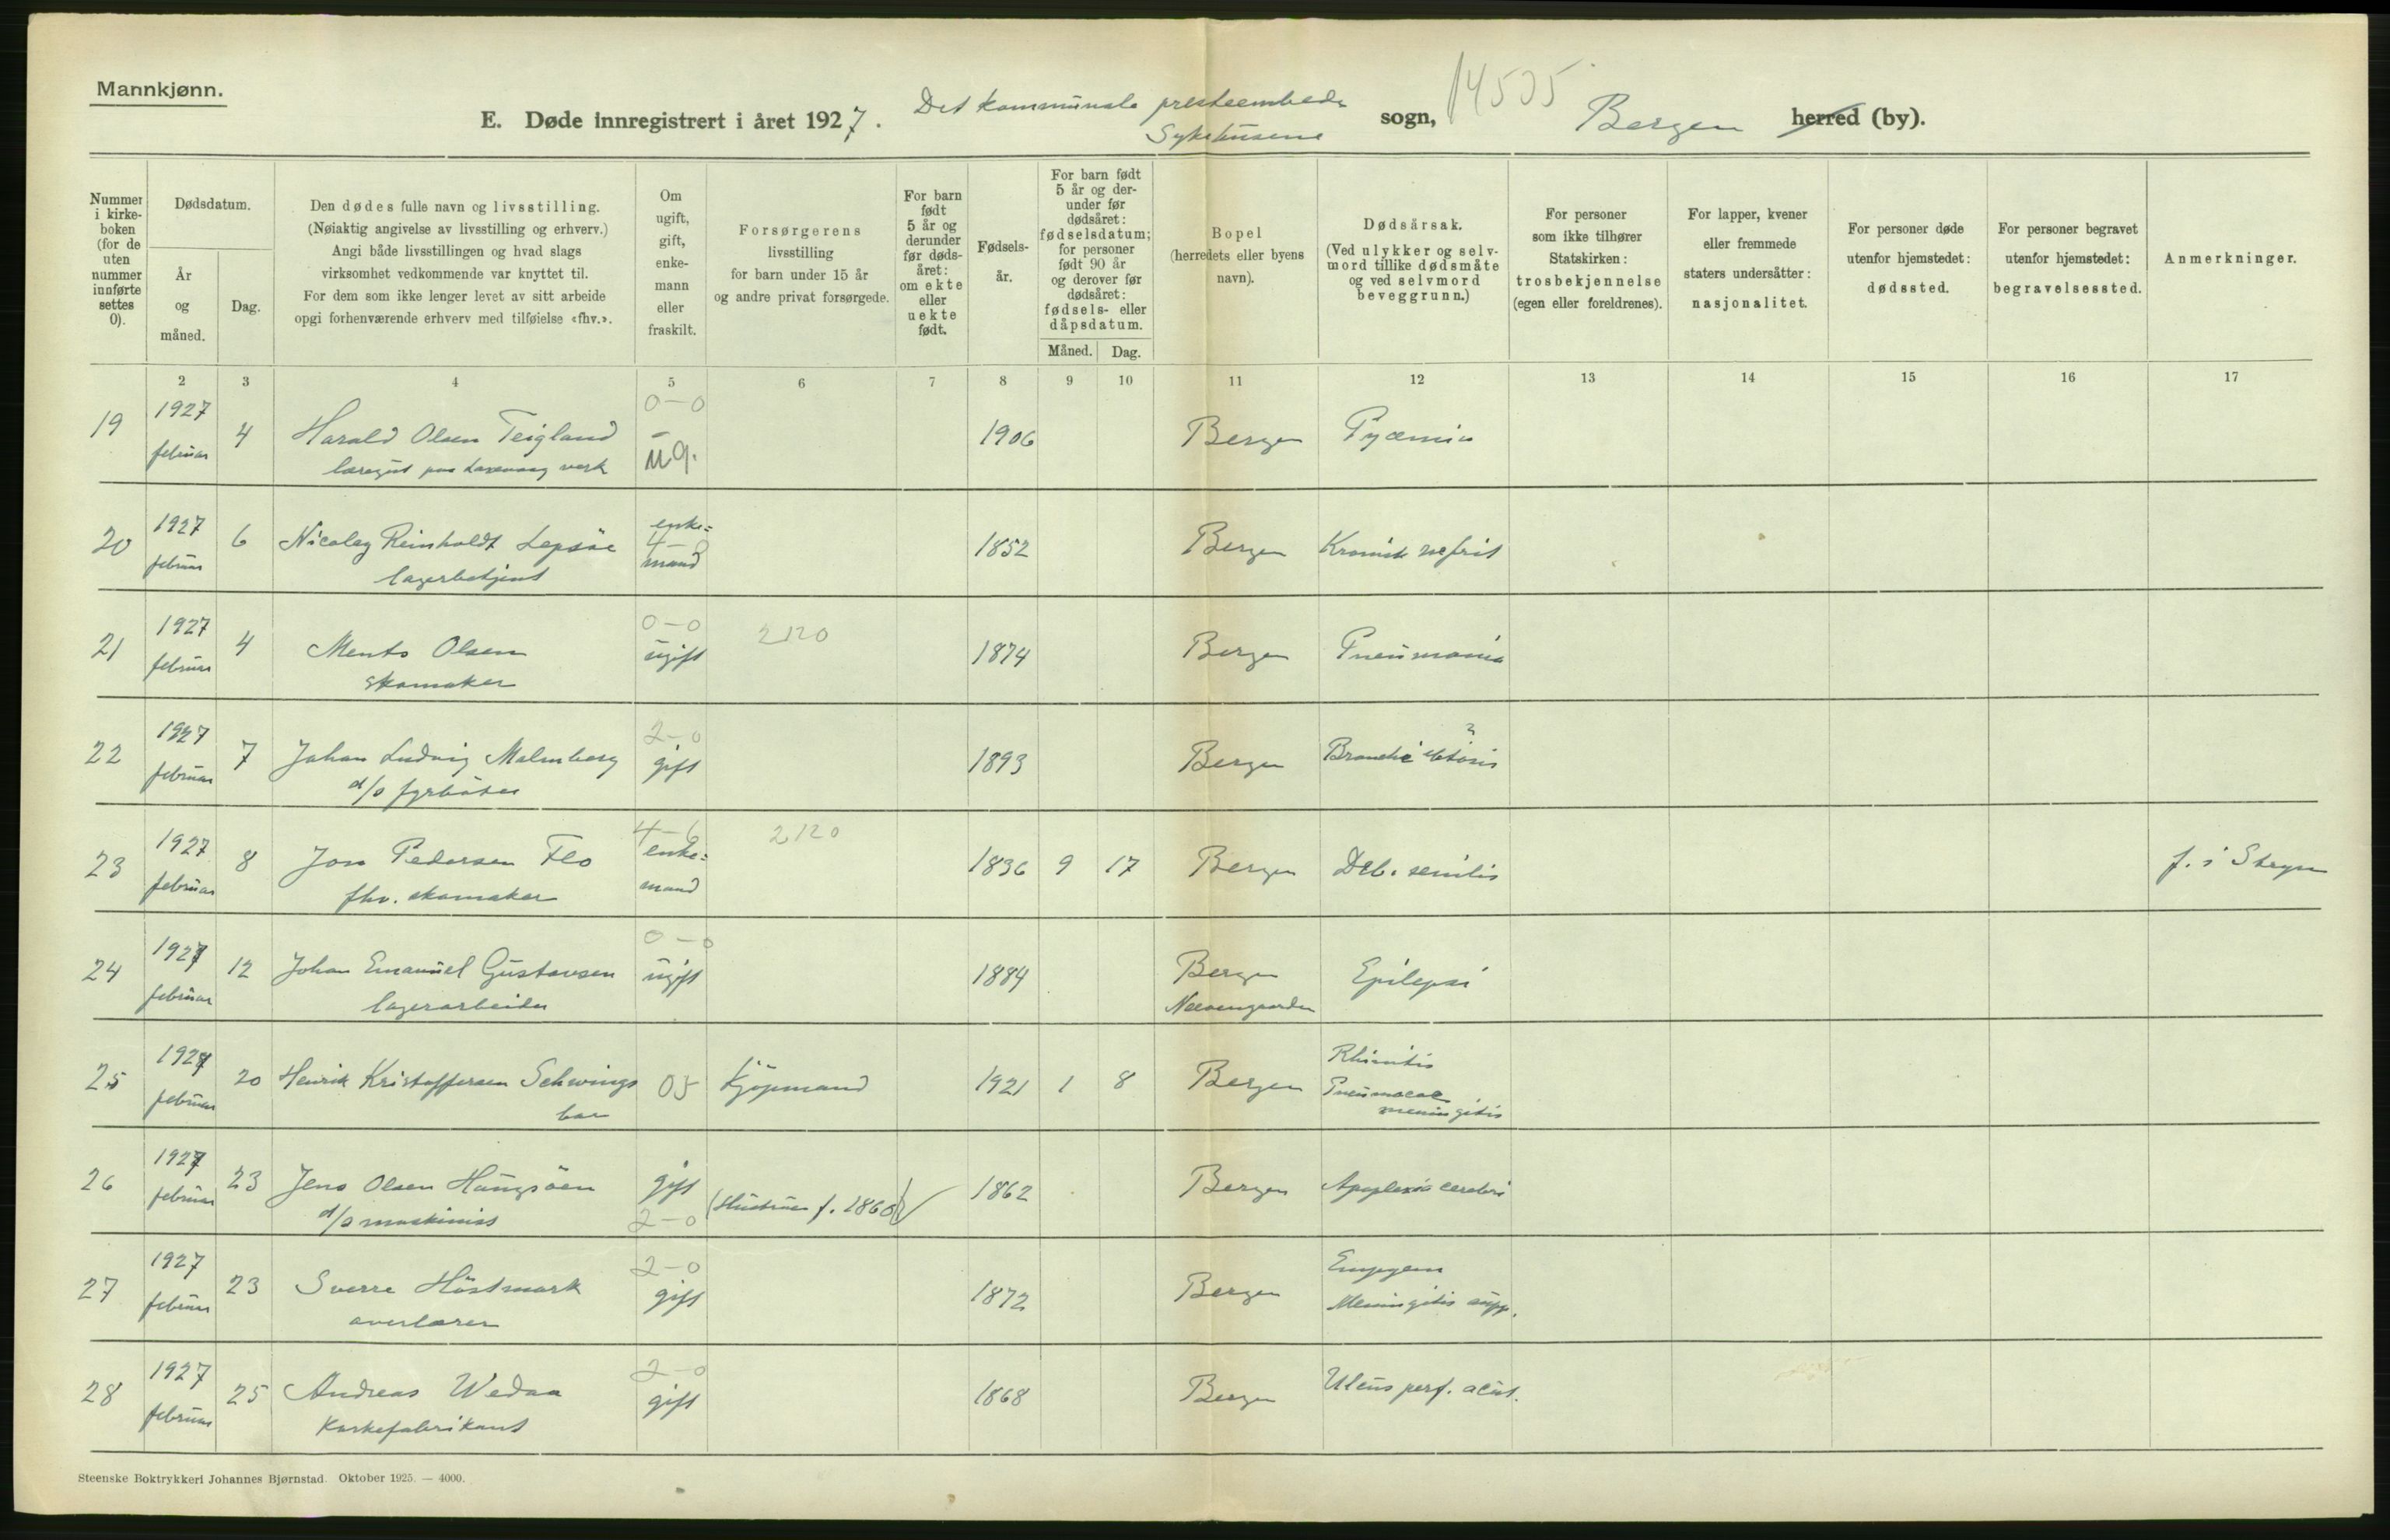 Mannkjønn.
E. Døde innregistrert i året 1927. Det kommunale presteembede sogn, 14505 Bergen herred (by).
Sykehusene
Nummer i kirke-boken (for de uten nummer innførte settes 0).
Dødsdatum.
År og måned.
Dag.
Den dødes fulle navn og livsstilling.
(Nøiaktig angivelse av livsstilling og erhverv.)
Angi både livsstillingen og hvad slags
virksomhet vedkommende var knyttet til.
For dem som ikke lenger levet av sitt arbeide
opgi forhenværende erhverv med tilføielse «fhv.».
Om ugift, gift, enke-mann eller fraskilt.
Forsørgerens
livsstilling
for barn under 15 år
og andre privat forsørgede.
For barn født 5 år og derunder før døds-året: om ekte eller uekte født.
Fødsels-år.
For barn født 5 år og der-under før dødsåret: fødselsdatum; for personer født 90 år og derover før dødsåret: fødsels- eller dåpsdatum.
Måned. Dag.
Bopel
(herredets eller byens
navn).
Dødsårsak.
(Ved ulykker og selv-
mord tillike dødsmåte
og ved selvmord
beveggrunn.)
For personer
som ikke tilhører
Statskirken:
trosbekjennelse
(egen eller foreldrenes).
For lapper, kvener
eller fremmede
staters undersåtter:
nasjonalitet.
For personer døde
utenfor hjemstedet:
dødssted.
For personer begravet
utenfor hjemstedet:
begravelsessted.
Anmerkninger.
2 3 4 5 6 7 8 9 10 11 12 13 14 15 16 17
0-0
19 1927 februar 4 Harald Olsen Teigland ug. 1906 Bergen Pyæmia
læregut paa Laxevaag verk
20 1927 februar 6 Nicolay Reinholdt Lepsöe enke= 4-0 mand 1852 Bergen Kronisk nefrit
lagerbetjent
21 1927 februar 4 Mento Olsen 0-0 ugift 2120 1874 Bergen Pneumonia
skomaker
22 1927 februar 7 Johan Ludvig Malmberg 2-0 gift 1893 Bergen Bronchiektasis ?
d/s fyrböter
23 1927 februar 8 Jon Pedersen Flo 4-6 enke= mand 2120 1836 9 17 Bergen Deb. senilis f. i Stryn
fhv. skomaker
24 1927 februar 12 Johan Emanuel Gustavsen 0-0 ugift 1884 Bergen Epilepsi
lagerarbeider Neevengaarden
25 1927 februar 20 Henrik Kristoffersen Schwings 05 Kjöpmand 1921 1 8 Bergen Rhinitis
barn Pneumococ.
meningitis
26 1927 februar 23 Jens Olsen Haugsöen gift 2-0 (Hustruen f. 1860) 1862 Bergen Apoplexia cerebri
d/s maskinist
27 1927 februar 23 Sverre Höstmark 2-0 gift 1872 Bergen Empyem
overlærer Meningitis supp.
28 1927 februar 25 Andreas Wedaa 2-0 gift 1868 Bergen Ulcus perf. acut.
Korkefabrikant
Steenske Boktrykkeri Johannes Bjørnstad. Oktober 1925. — 4000.